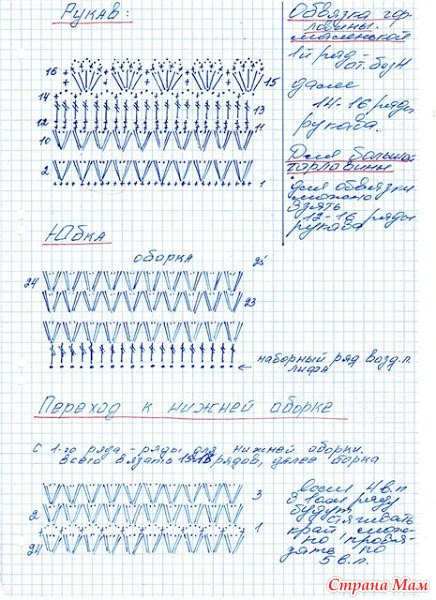 Рукав:
16
15
14
13
12
11
10
2
1
Обвязка гор
ловины.
маленькой
1й ряд -
ст. без н
далее
14-16 ряда
рукава.
Для больш.
горловины
для обвязки
можно
взять
12-16 ряды
рукава
Юбка
оборка
24
25
23
наборный ряд возд.п.
лифа
Переход к нижней оборке
с 1-го ряда - ряды для нижней оборки.
всего вязать рядов, далее борка
3
2
1
24
если 4 в.п
в 1ом ряду
будут
стягивать
край мож-
но провя-
зать по
5 в.п.
Страна Мам